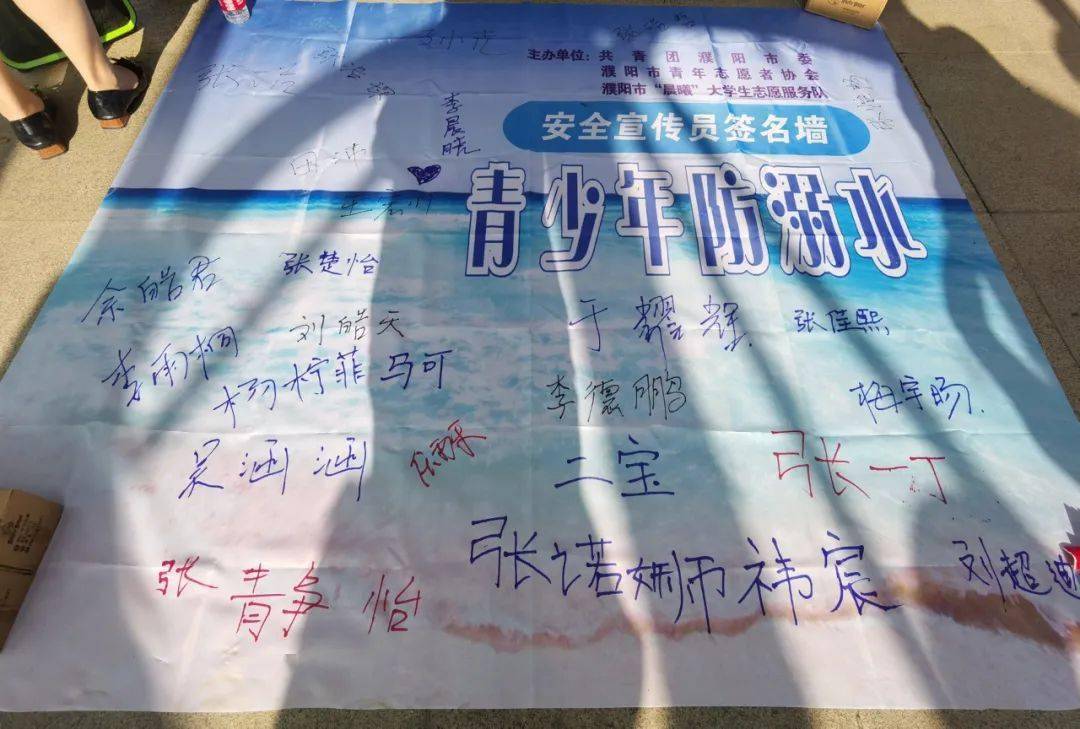 主办单位：共青团濮阳市委
濮阳市青年志愿者协会
濮阳市“晨曦”大学生志愿服务队
安全宣传员签名墙
李晨皓
青少年防溺水
余皓君 张楚怡
刘皓天 于耀辉 张佳熙
李雨桐
杨柠菲 马可 李德鹏 梅宇旸
吴涵涵 二宝 张一丁
张诺娴 师祎宸 刘超迪
张静怡